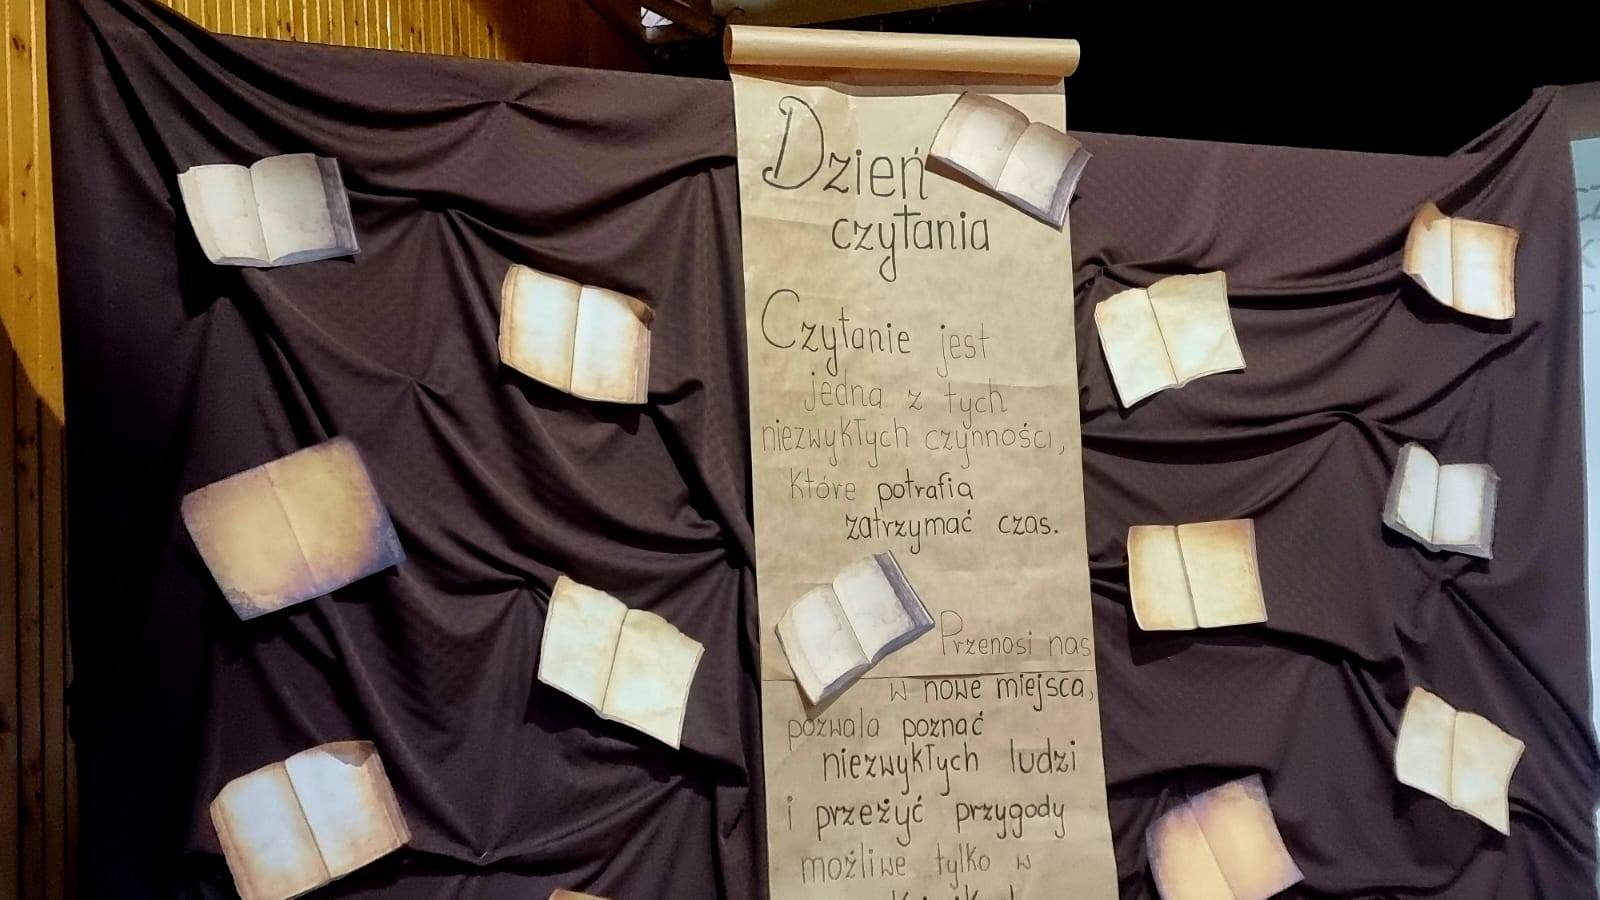 Dzień
czytania
Czytanie jest
jedną z tych
niezwykłych czynności,
które potrafią
zatrzymać czas.
Przenosi nas
w nowe miejsca,
pozwala poznać
niezwykłych ludzi
i przeżyć przygody
możliwe tylko w